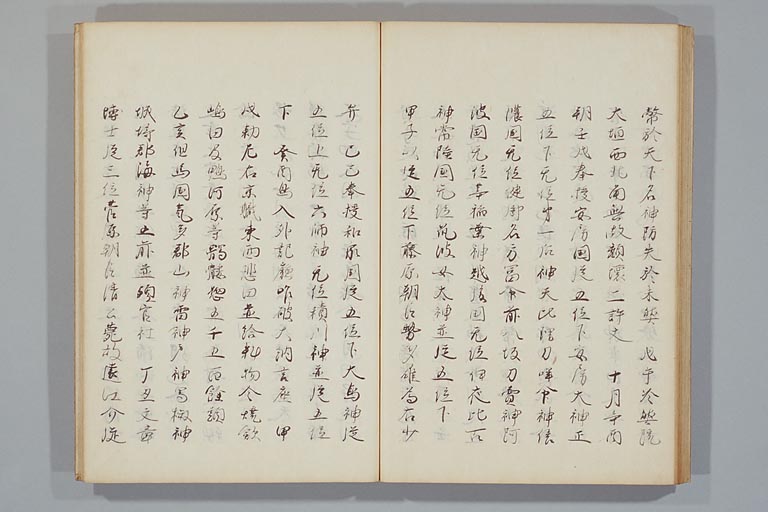 幣於天下名神防失於未然 戊子冷然院
大垣西北角無故頽潰二許丈 十月辛酉
朔壬戌奉授安房国従五位下安房大神正
五位下無位第一后神天比理刀咩命神信
濃国無位健御名方富命前八坂刀賣神阿
波国無位葦稲葉神越後国無位伊夜比古
神常陸国無位筑波女大神並従五位下
甲子以従五位下藤原朝臣勢多雄為右少
弁 己巳奉授和泉国従五位下大鳥神従
五位上無位大歳神無位積川神並従五位
下 癸酉鳥入外記廳咋破大納言座 甲
戌勅左右京職東西悲田並給料物令焼斂
嶋田及鴨河原等髑髏惣五千五百餘頭
乙亥但馬国気多郡山神雷神戸神㯮椒神
城埼郡海神等五前並預官社 丁丑文章
博士従三位菅原朝臣清公薨故遠江介従